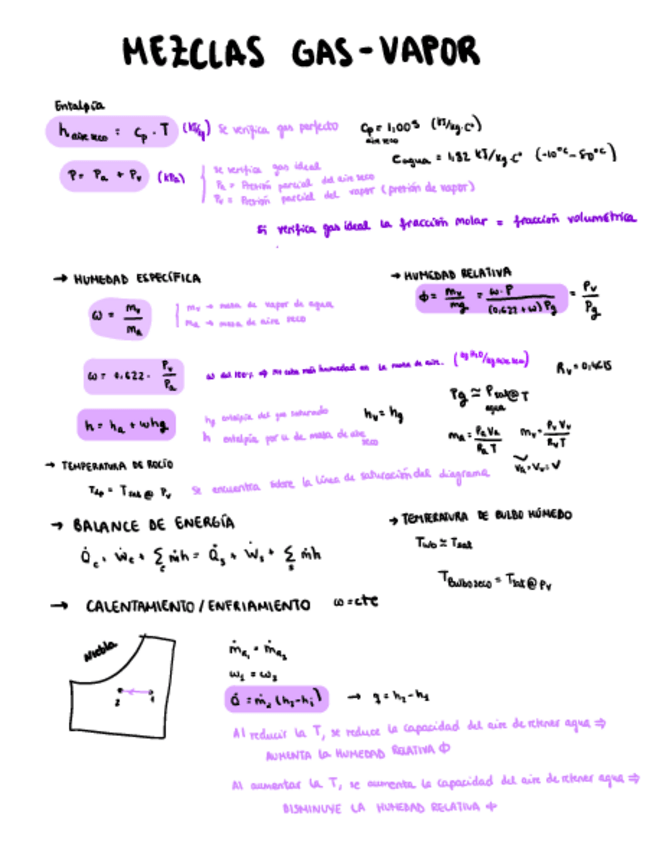 MEZCLAS GAS-VAPOR
Entalpía
h aire seco = Cp · T (kJ/kg) se verifica gas perfecto
Cp = 1,005 (kJ/kg·Cº)
aire seco
Cagua = 1,82 kJ/kg·Cº (-10ºC - 50ºC)
P = Pa + Pv (kPa)
se verifica gas ideal
Pa = Presión parcial del aire seco
Pv = Presión parcial del vapor (presión de vapor)
Si verifica gas ideal la fracción molar = fracción volumétrica
→ HUMEDAD ESPECÍFICA
ω = mv / ma
mv → masa de vapor de agua
ma → masa de aire seco
→ HUMEDAD RELATIVA
ϕ = mv / mg = ω · P / (0,622 + ω) Pg = Pv / Pg
ω = 0,622 · Pv / Pa
ω del 100% ⇒ no cabe más humedad en la masa de aire.
Rv = 0,4615
Pg ≃ Psat@T
agua
h = ha + ωhg
hg entalpía del gas saturado
h entalpía por u de masa de aire seco
hv = hg
ma = Pa Va / Ra T mv = Pv Vv / Rv T
Va = Vv = V
→ TEMPERATURA DE ROCÍO
Tdp = Tsat @ Pv se encuentra sobre la línea de saturación del diagrama
→ BALANCE DE ENERGÍA
Q̇e + Ẇe + ∑e ṁh = Q̇s + Ẇs + ∑s ṁh
→ TEMPERATURA DE BULBO HÚMEDO
Twb ≃ Tsat
TBulbo seco = Tsat @ Pv
→ CALENTAMIENTO / ENFRIAMIENTO ω = cte
Niebla
2 1
ṁa1 = ṁa2
ω1 = ω2
Q̇ = ṁa (h2 - h1) → q = h2 - h1
Al reducir la T, se reduce la capacidad del aire de retener agua ⇒
AUMENTA LA HUMEDAD RELATIVA ϕ
Al aumentar la T, se aumenta la capacidad del aire de retener agua ⇒
DISMINUYE LA HUMEDAD RELATIVA ϕ